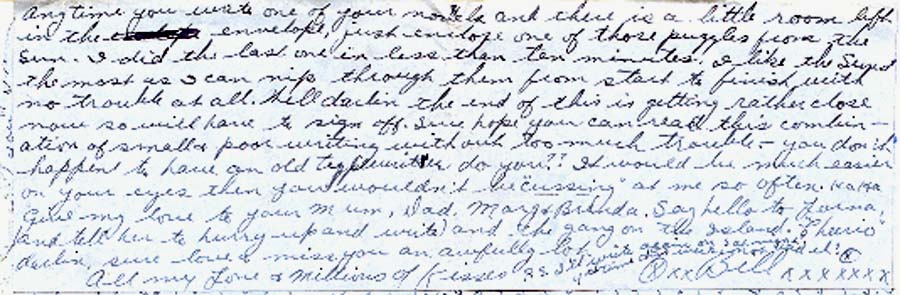 Anytime you write one of your novels and there is a little room left
in the envelope, just enclose one of those puzzles from the
Sun. I did the last one in less then ten minutes. I like the Sun's
the most as I can nip through them from start to finish with
no trouble at all. Well darlin the end of this is getting rather close
now so will have to sign off. Sure hope you can read this combin-
ation of small & poor writing without too much trouble - you don't
happen to have an old typewriter do you?? It would be much easier
on your eyes then you wouldn't be "cussing" at me so often. HaHa
Give my love to your Mum, Dad. Marg & Brenda. Say hello to
(and tell her to hurry up and write) and the gang on the Island.
darlin, sure love & miss you an awfully lot
P.S. I'll write again on
All my Love & Millions of Kisses xx Bill xxxxxxx